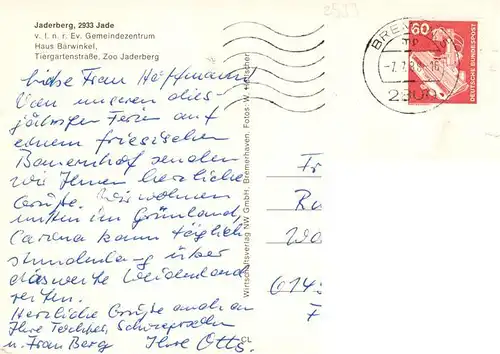 Jaderberg, 2933 Jade
v. l. n. r. Ev. Gemeindezentrum
Haus Bärwinkel,
Tiergartenstraße, Zoo Jaderberg
Liebe Frau Hoffmann!
Von unseren dies-
jährigen Ferien auf
einem friesischen
Bauernhof senden
wir Ihnen herzliche
Grüße. Wir wohnen
mitten im Grünland,
Carena kann täglich
stundenlang über
das weite Weideland
reiten.
Herzliche Grüße auch an
Ihre Tochter,
u. Frau Berg Ihre Otts.
Wirtschaftsverlag NW GmbH, Bremerhaven. Fotos: W.
60
DEUTSCHE BUNDESPOST
BREM
Fr
Ru
Wa
614
F